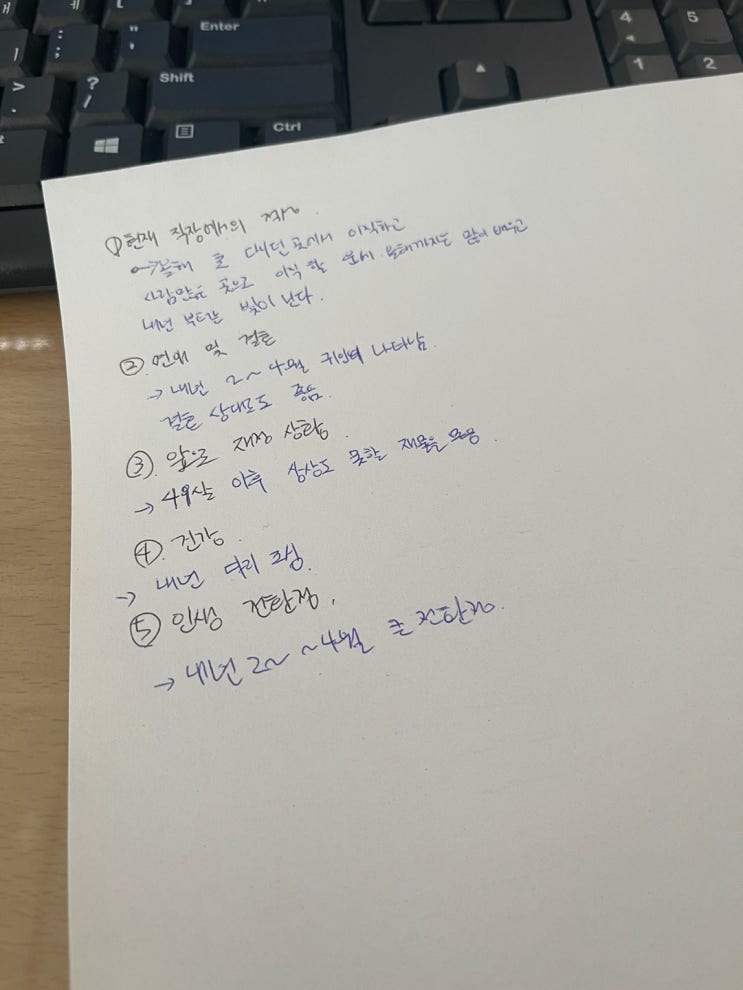 Enter
Shift
Ctrl
4
5
1
2
① 현재 직장에서의
→ 올해 초 다니던 곳에서 이직하고
사람많은 곳으로 이직 할 운세 올해까지는 많이 배우고
내년 부터는 빛이 난다.
② 연애 및 결혼
→ 내년 2~4월 귀인이 나타남.
결혼 상대로도 좋음.
③ 앞으로 재정 상황.
→ 49살 이후 상상도 못할 재물을
④. 건강.
→ 내년 다리 조심.
⑤ 인생 전환점.
→ 내년 2~ ~4월 큰 전환점.